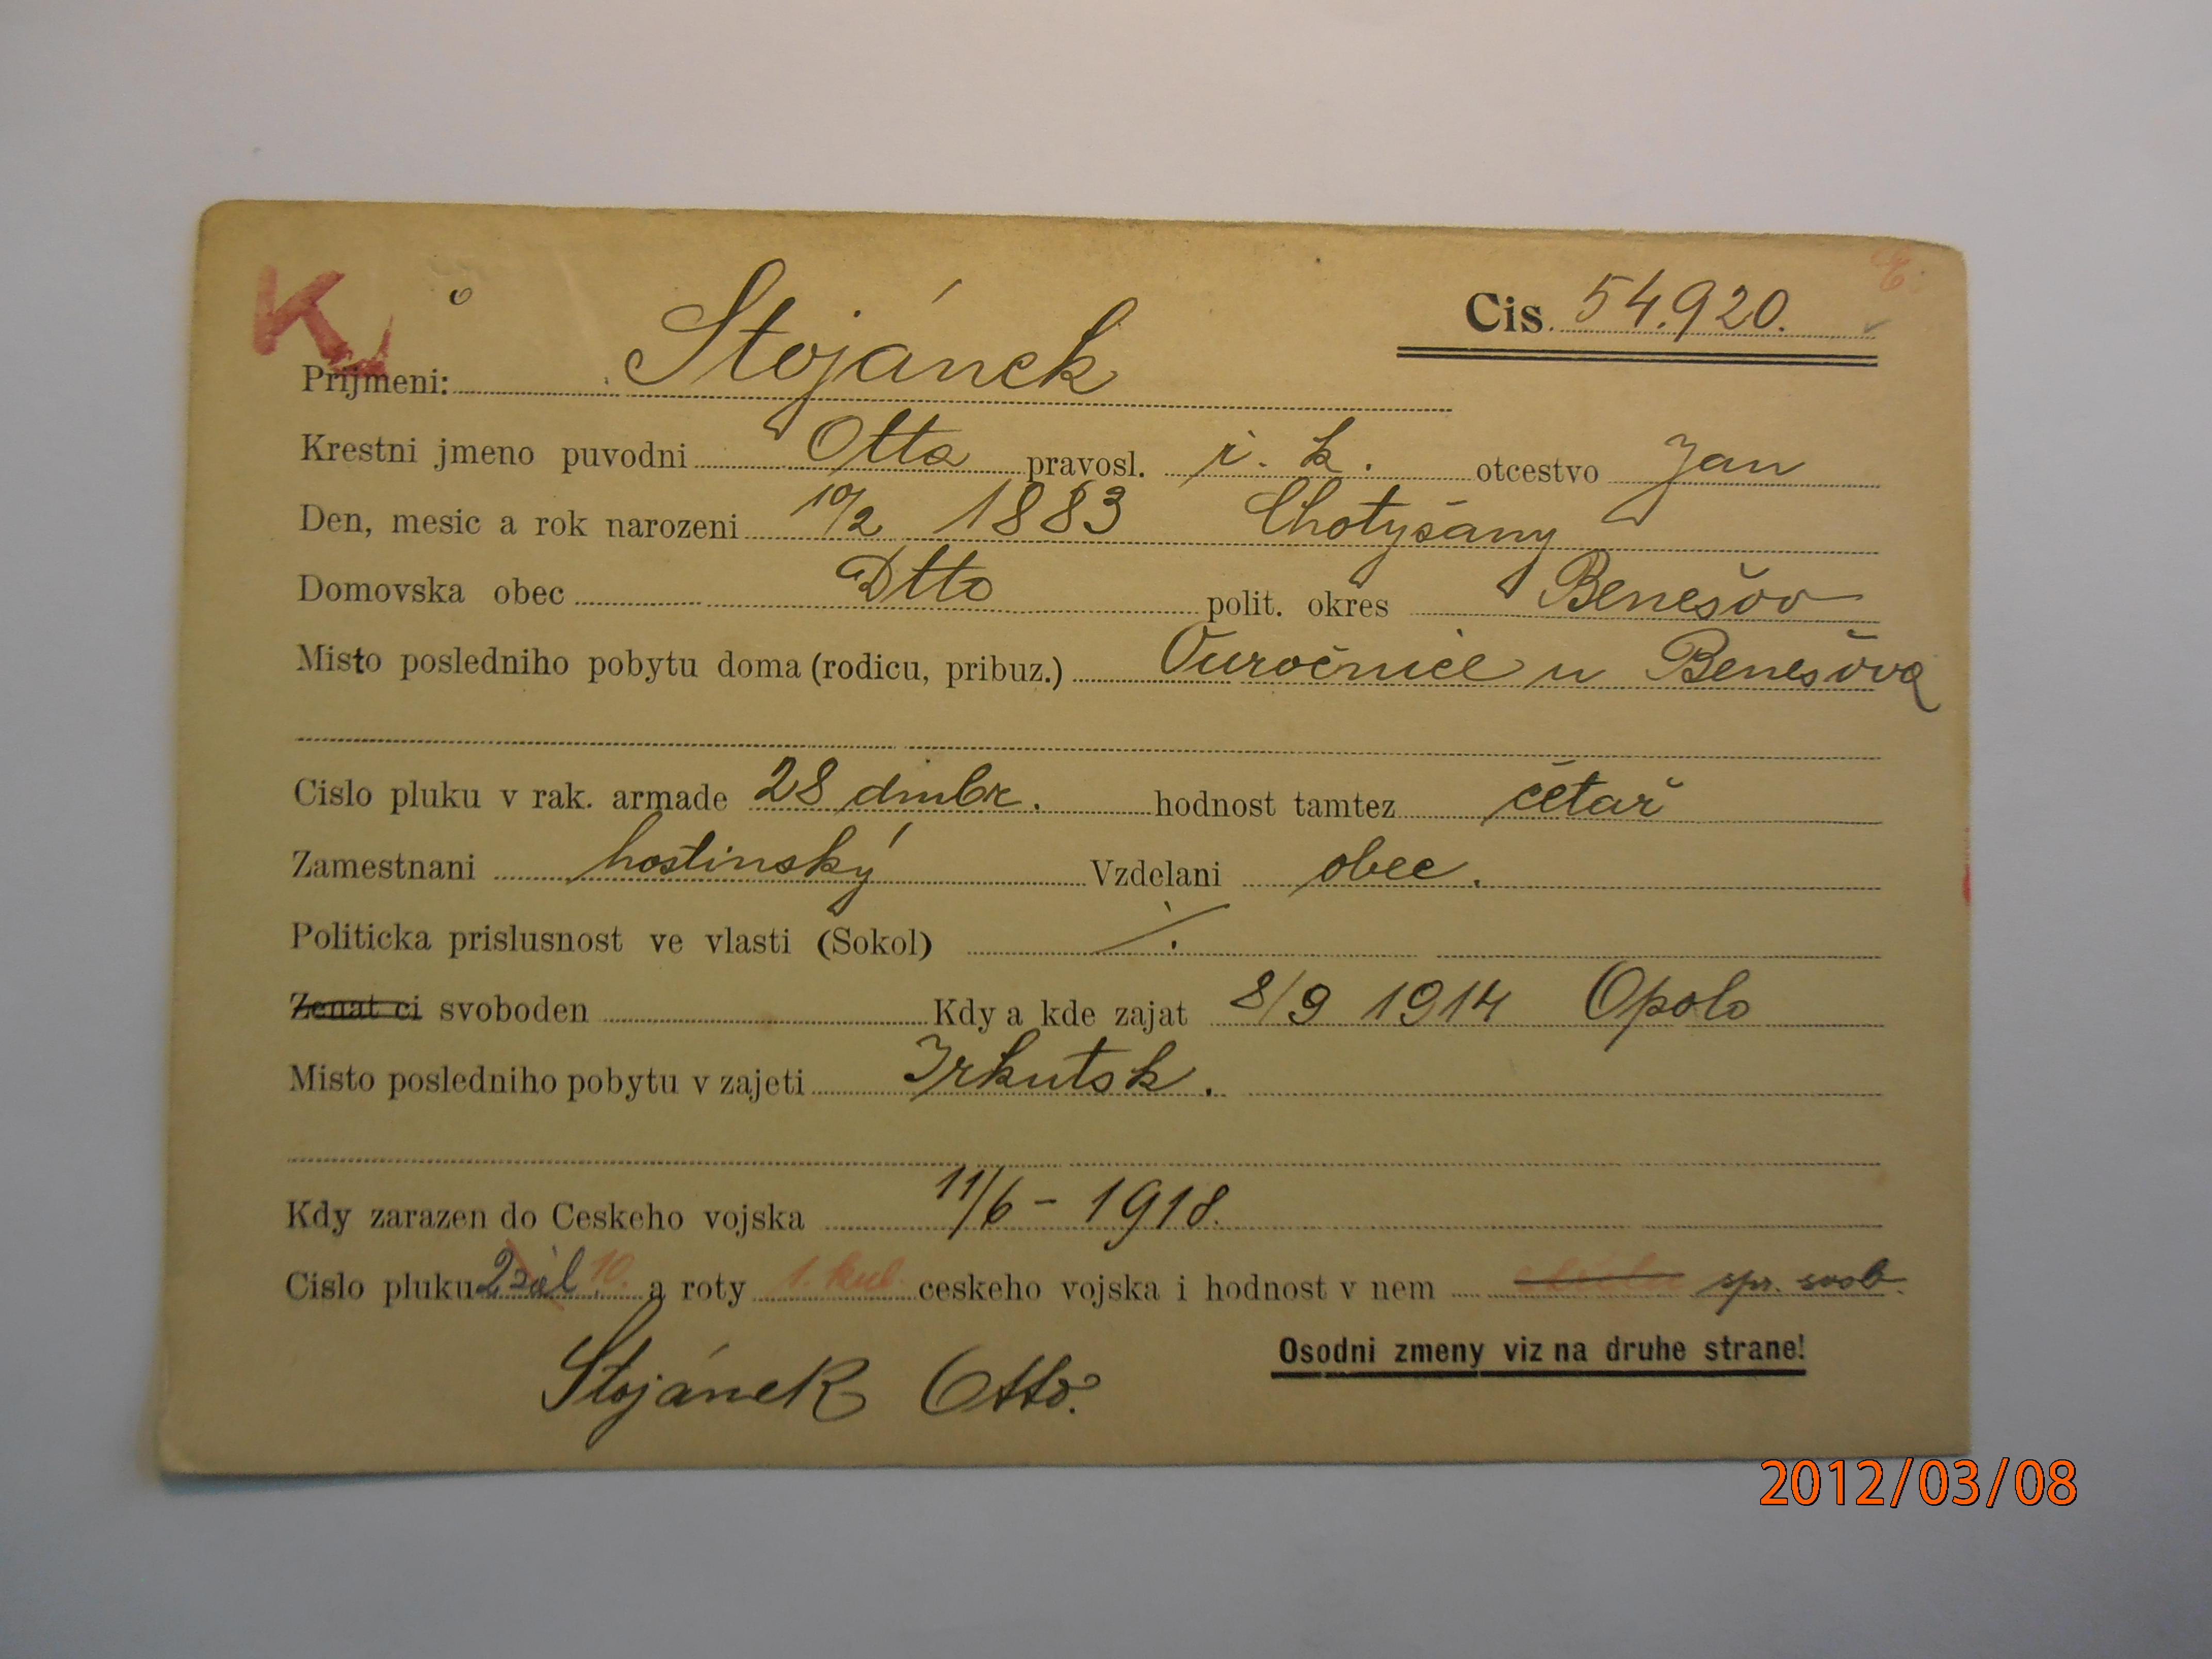 K
Cis. 54.920.
Prijmeni: Stojánek
Krestni jmeno puvodni Otto pravosl. ř. k. otcestvo Jan
Den, mesic a rok narozeni 10/2 1883 Chotyšany
Domovska obec Dtto polit. okres Benešov
Misto posledniho pobytu doma (rodicu, pribuz.) Ouročnice u Benešova
Cislo pluku v rak. armade 28 hodnost tamtez četař
Zamestnani hostinský Vzdelani obec.
Politicka prislusnost ve vlasti (Sokol) /.
Zenat ci svoboden Kdy a kde zajat 8/9 1914 Opolo
Misto posledniho pobytu v zajeti Irkutsk.
Kdy zarazen do Ceskeho vojska 11/6 - 1918.
Cislo pluku 2 zál 10. a roty 1. kul. ceskeho vojska i hodnost v nem spr. svob.
Osodni zmeny viz na druhe strane!
Stojánek Otto.
2012/03/08